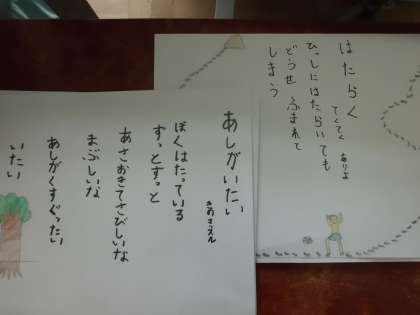 はたらく
てくてく ありよ
ひっしにはたらいても
どうせ ふまれて
しまう
あしがいたい
ぼくはたっている
ずっとずっと
あさおきてさびしいな
まぶしいな
あしがくすぐったい
いたい